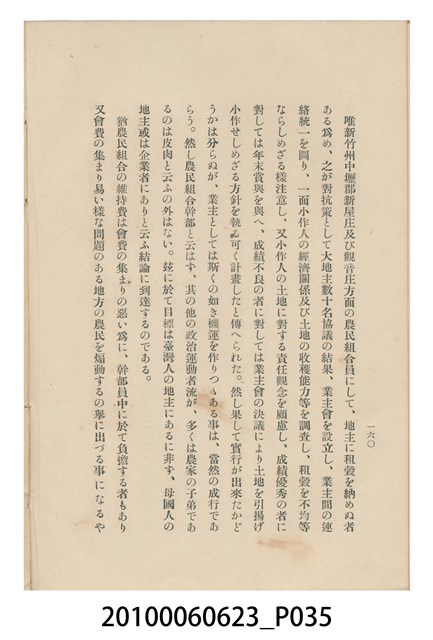 一六〇
唯新竹州中壢郡新屋庄及び觀音庄方面の農民組合員にして、地主に租穀を納めぬ者
ある爲め、之が對抗策として大地主數十名協議の結果、業主會を設立し、業主間の連
絡統一を圖り、一面小作人の經濟關係及び土地の收穫能力等を調査し、租穀を不均等
ならしめざる樣注意し、又小作人の土地に對する責任觀念を顧慮し、成績優秀の者に
對しては年末賞與を與へ、成績不良の者に對しては業主會の決議により土地を引揚げ
小作せしめざる方針を執る可く計畫したと傳へられた。然し果して實行が出來たかど
うかは分らぬが、業主としては斯くの如き機運を作りつゝある事は、當然の成行であ
らう。然し農民組合幹部と云はず、其の他の政治運動者流が、多くは農家の子弟であ
るのは皮肉と云ふの外はない。玆に於て目標は臺灣人の地主にあるに非ず、母國人の
地主或は企業者にありと云ふ結論に到達するのである。
猶農民組合の維持費は會費の集まりの惡い爲に、幹部員中に於て負擔する者もあり
又會費の集まり易い樣な問題のある地方の農民を煽動するの擧に出づる事になるや
20100060623_P035